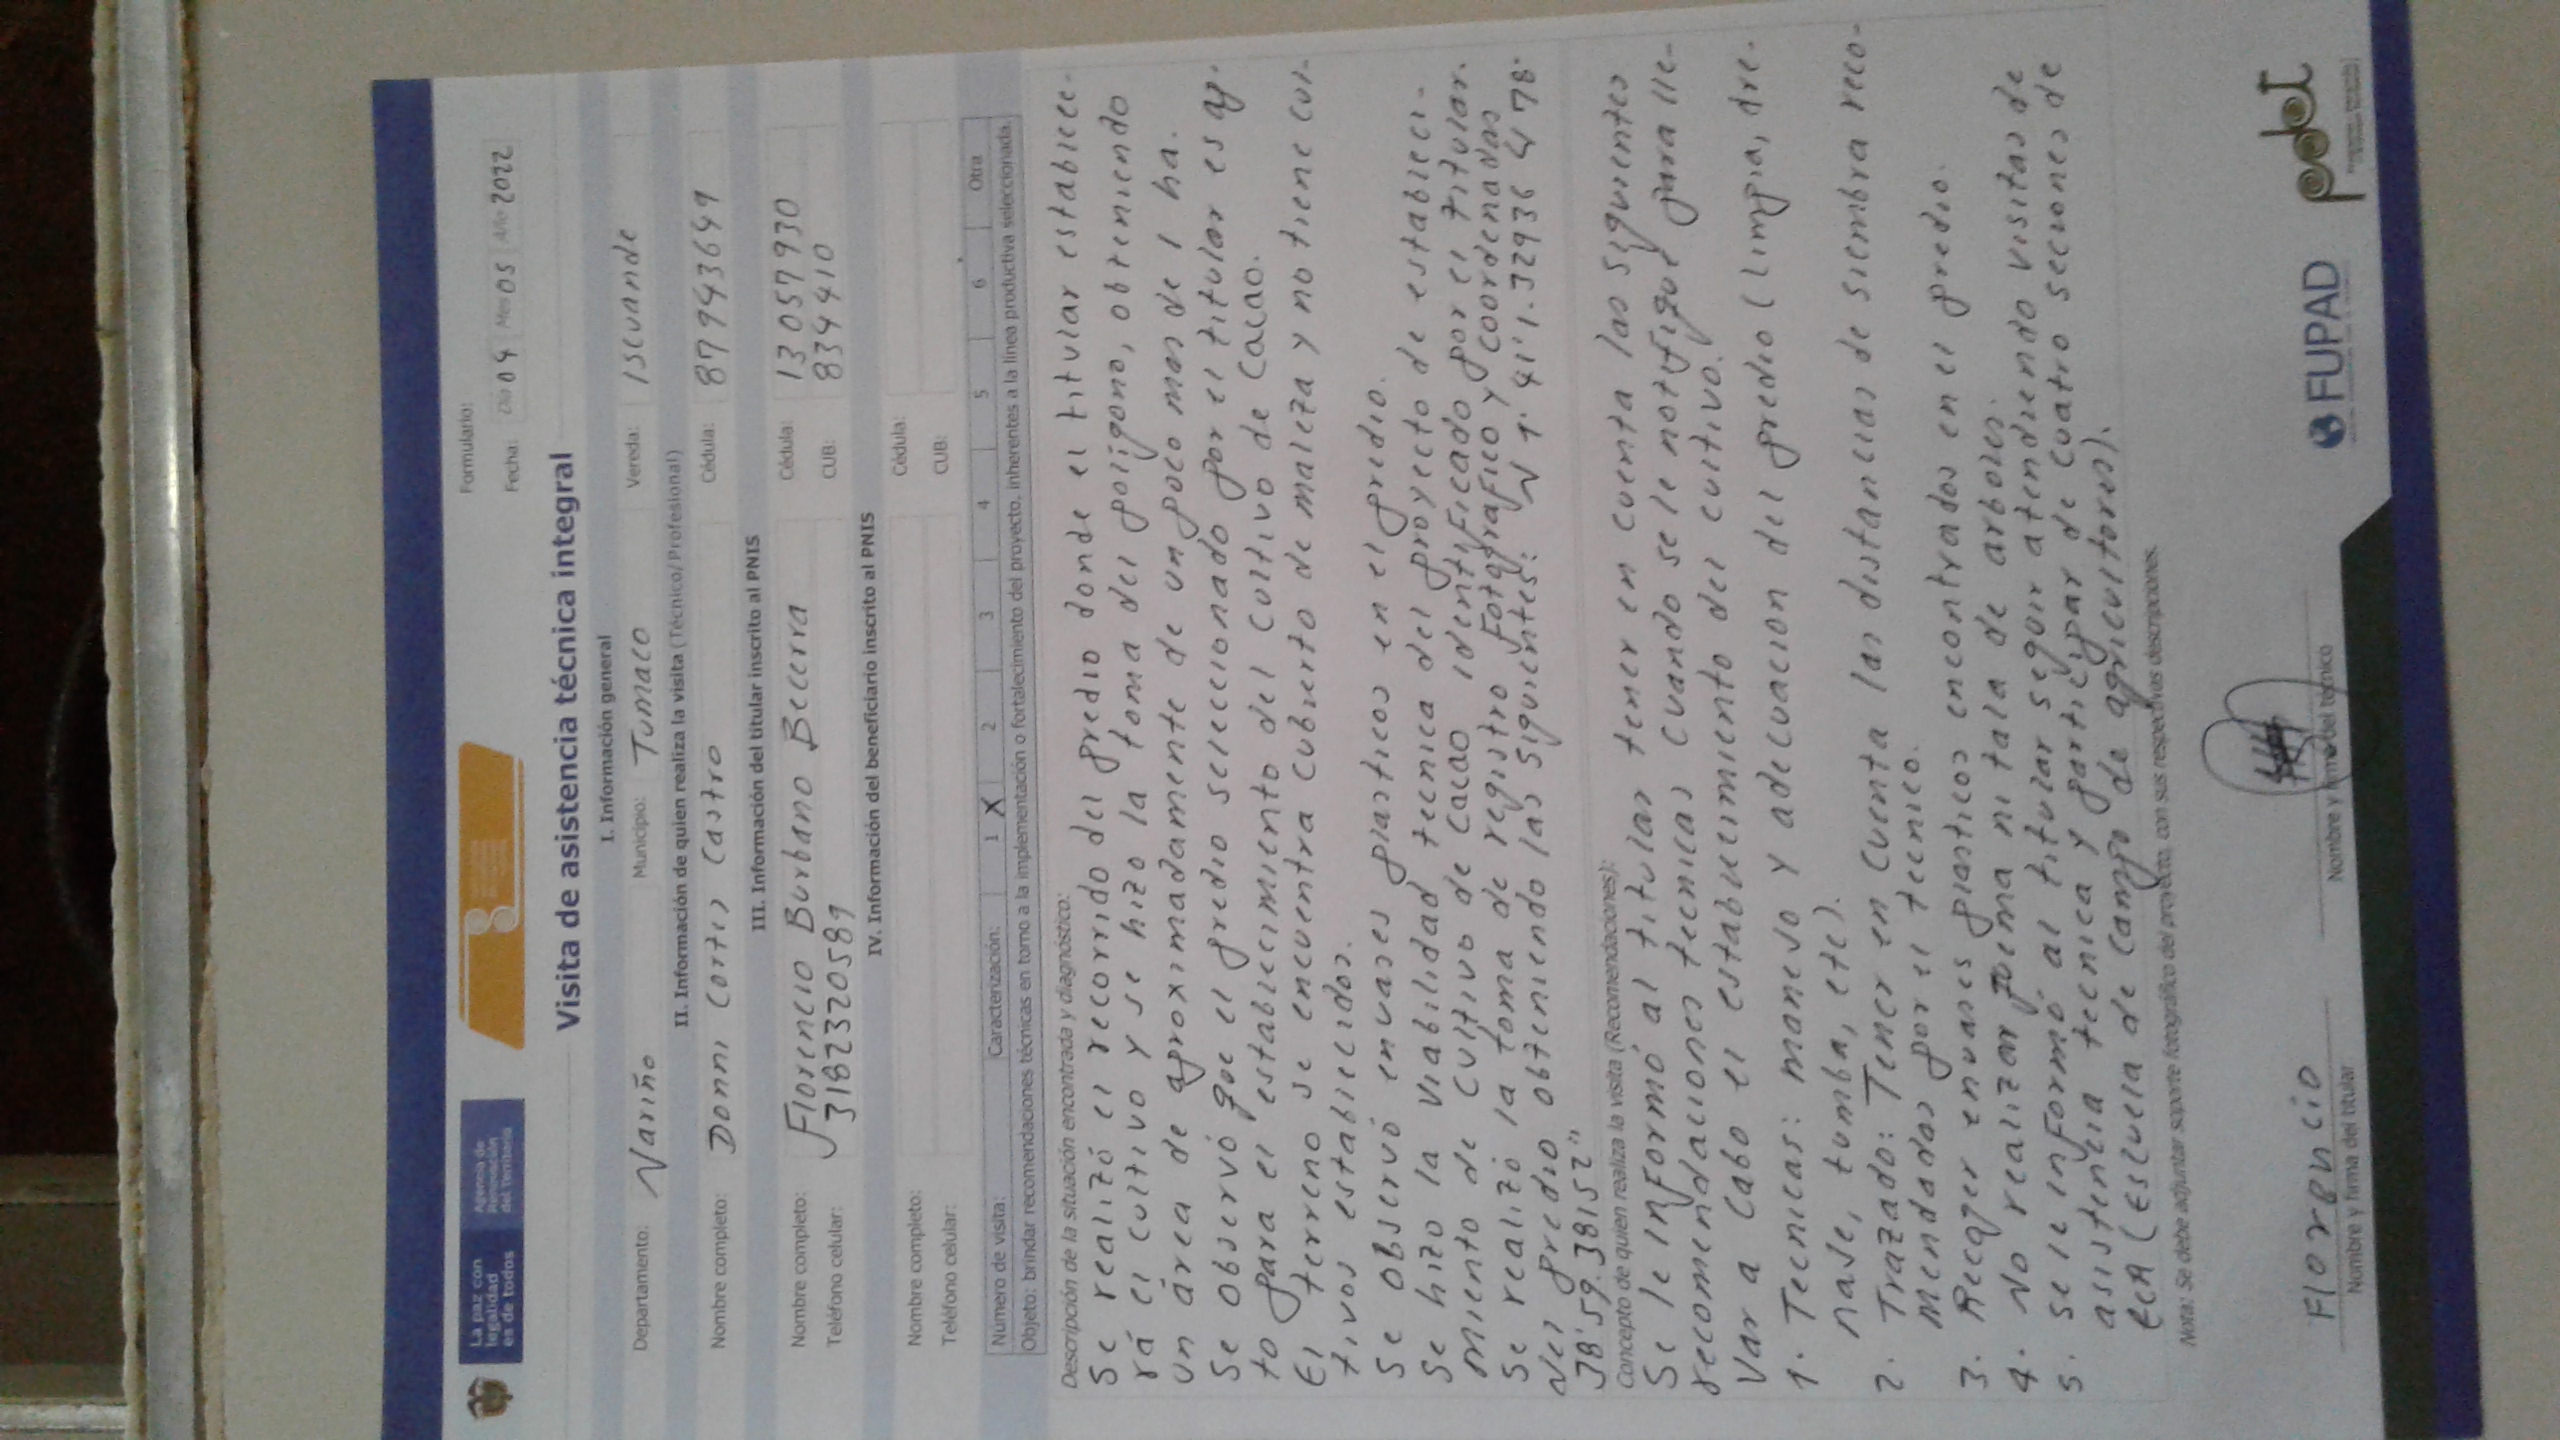 La paz con
legalidad
es de todos
Agencia de
Renovación
del Territorio
Formulario:
Fecha: Día 04 Mes 05 Año 2022
Visita de asistencia técnica integral
I. Información general
Departamento: Nariño Municipio: Tumaco Vereda: Iscuande
II. Información de quien realiza la visita (Técnico/ Profesional)
Nombre completo: Donni Cortes Castro Cédula: 87943649
III. Información del titular inscrito al PNIS
Nombre completo: Florencio Burbano Becerra Cédula: 13057930
Teléfono celular: 3182320589 CUB: 834410
IV. Información del beneficiario inscrito al PNIS
Nombre completo: Cédula:
Teléfono celular: CUB:
Número de visita: Caracterización: 1 X 2 3 4 5 6 Otra
Objeto: brindar recomendaciones técnicas en torno a la implementación o fortalecimiento del proyecto, inherentes a la línea productiva seleccionada.
Descripción de la situación encontrada y diagnóstico:
Se realizó el recorrido del predio donde el titular establece-
rá el cultivo y se hizo la toma del poligono, obteniendo
un área de aproximadamente de un poco mas de 1 ha.
Se observó que el predio seleccionado por el titular es ap-
to para el establecimiento del cultivo de Cacao.
El terreno se encuentra cubierto de maleza y no tiene cul-
tivos establecidos.
Se observó envases plasticos en el predio.
Se hizo la viabilidad tecnica del proyecto de estableci-
miento de cultivo de cacao identificado por el titular.
Se realizó la toma de registro fotografico y coordenadas
del predio obteniendo las siguientes: N 1° 41'1.32936 W 78°
38'59.38152"
Concepto de quien realiza la visita (Recomendaciones):
Se le informó al titular tener en cuenta las siguientes
recomendaciones tecnicas cuando se le notifique para lle-
var a cabo el establecimiento del cultivo.
1. Tecnicas: manejo y adecuacion del predio (limpia, dre-
naje, tumba, etc).
2. Trazado: Tener en cuenta las distancias de siembra reco-
mendadas por el tecnico.
3. Recoger envases plasticos encontrados en el predio.
4. No realizar quema ni tala de arboles.
5. Se le informó al titular seguir atendiendo visitas de
asistencia tecnica y participar de cuatro secciones de
ECA (Escuela de campo de agricultores).
Nota: Se debe adjuntar soporte fotográfico del proyecto, con sus respectivas descripciones.
Florencio
Nombre y firma del titular
Nombre y firma del técnico
FUPAD
pdet